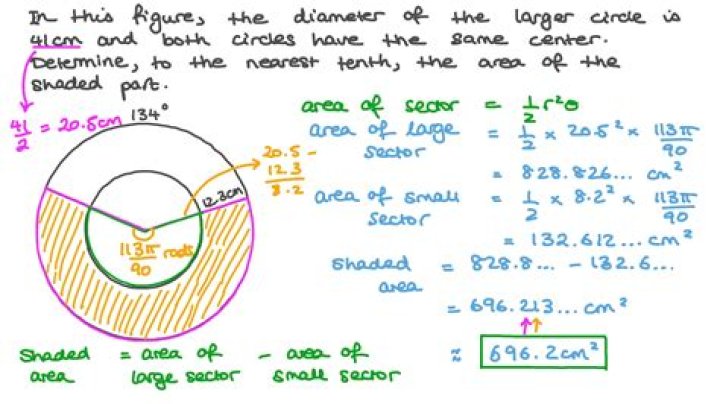 In this figure, the diameter of the larger circle is
41cm and both circles have the same center.
Determine, to the nearest tenth, the area of the
shaded part.
41/2 = 20.5cm
134°
20.5 -
12.3
8.2
12.3cm
113π/90 rads
area of sector = 1/2 r²θ
area of large sector = 1/2 × 20.5² × 113π/90
= 828.826... cm²
area of small sector = 1/2 × 8.2² × 113π/90
= 132.612... cm²
shaded area = 828.8... - 132.6...
= 696.213... cm²
≈ 696.2cm²
shaded area = area of large sector - area of small sector